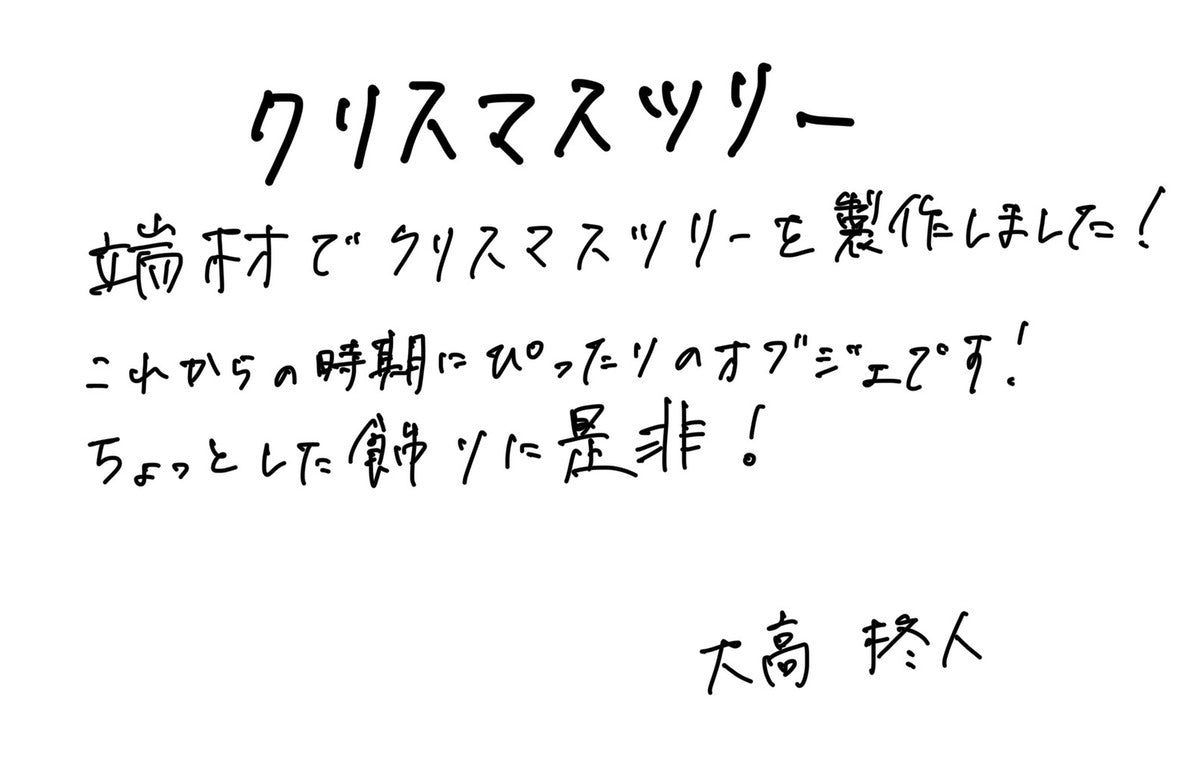 クリスマスツリー
端材でクリスマスツリーを製作しました!
これからの時期にぴったりのオブジェです!
ちょっとした飾りに是非!
大高 柊人